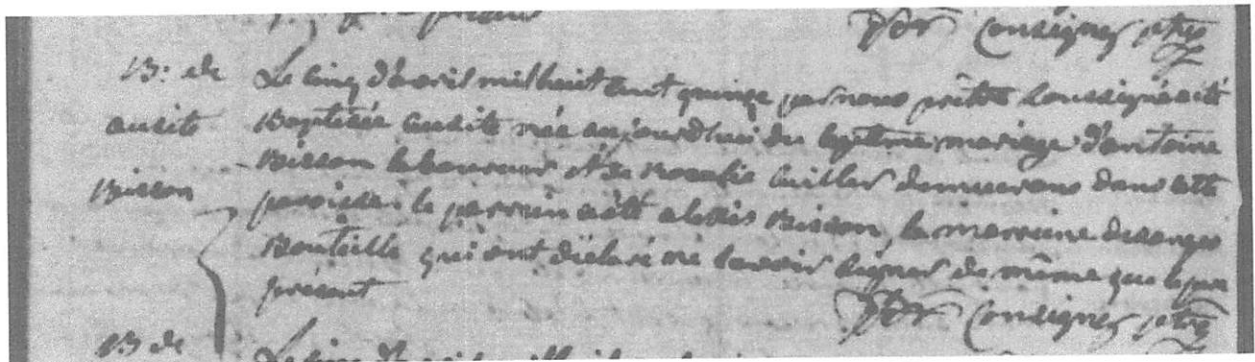 Ptre Consigny ptre
B: de
ausite
Bisson
Le cinq d'avril mil huit cent quinze par nous prêtre soussigné a été
Baptisée ausite née aujourd'hui du légitime mariage d'antoine
Bisson laboureur et de Rosalie Cuiller demeurans dans cette
paroisse. le parrain a été alexis Bisson, la marraine desanges
Bouteille qui ont déclaré ne savoir signer de même que le père
présent
Consigny ptre
B de